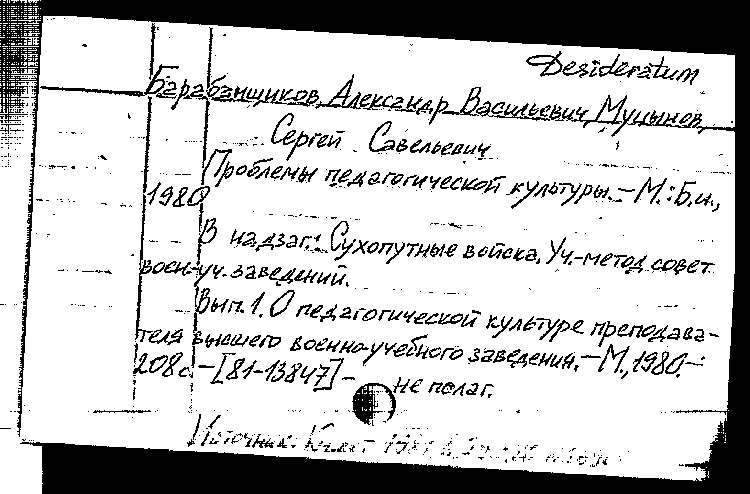 Desideratum
Барабанщиков, Александр Васильевич, Муцынов,
Сергей Савельевич
Проблемы педагогической культуры. — М.: Б.и.,
1980
В надзаг.: Сухопутные войска. Уч.-метод совет
воен-уч. заведений.
Вып. 1. О педагогической культуре препода-
теля высшего военно-учебного заведения. — М., 1980. —
208 с. — [81-13847] —
не полаг.
Источник: